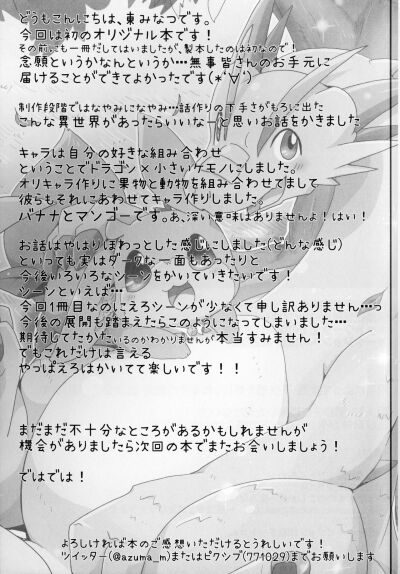 どうもこんにちは、東みなつです。
今回は初のオリジナル本です！
その前にも一冊だしてはいましたが、製本したのは初なので！
念願というかなんというか…無事皆さんのお手元に
届けることができてよかったです(*´∀`)
制作段階ではなやみになやみ…話作りの下手さがもろに出た
こんな異世界があったらいいなーと思いお話をかきました
キャラは自分の好きな組み合わせ
ということでドラゴン×小さいケモノにしました。
オリキャラ作りに果物と動物を組み合わせてまして
彼らもそれにあわせてキャラ作りしました。
バナナとマンゴーです。あ、深い意味はありませんよ！はい！
お話はやはりほわっとした感じにしました(どんな感じ)
といっても実はダークな一面もあったりと
今後いろいろなシーンをかいていきたいです！
シーンといえば…
今回1冊目なのにえろシーンが少なくて申し訳ありません…っ
今後の展開も踏まえたらこのようになってしまいました…
期待してたかたいるのかわかりませんが本当すみません！
でもこれだけは言える
やっぱえろはかいてて楽しいです！！
まだまだ不十分なところがあるかもしれませんが
機会がありましたら次回の本でまたお会いしましょう！
ではでは！
よろしければ本のご感想いただけるとうれしいです！
ツイッター(@azuma_m)またはピクシブ(771029)までお願いします